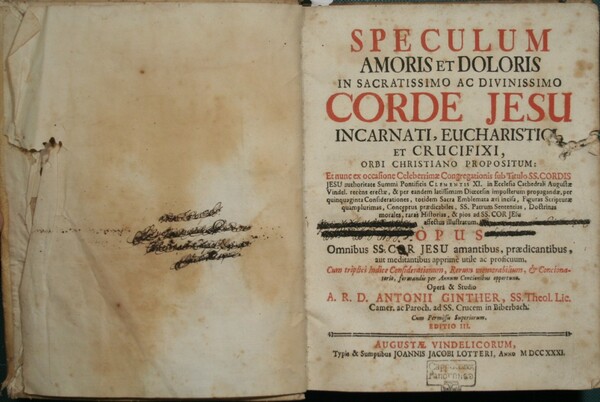 SPECULUM
AMORIS ET DOLORIS
IN SACRATISSIMO AC DIVINISSIMO
CORDE JESU
INCARNATI, EUCHARISTICI,
ET CRUCIFIXI,
ORBI CHRISTIANO PROPOSITUM:
Et nunc ex occasione Celeberrimæ Congregationis sub Titulo SS. CORDIS
JESU authoritate Summi Pontificis CLEMENTIS XI. in Ecclesia Cathedrali Augustæ
Vindel. recèns erectæ, & per eandem latissimam Diœcesin imposterum propagandæ, per
quinquaginta Considerationes, totidem Sacra Emblemata æri incisa, Figuras Scripturæ
quamplurimas, Conceptus prædicabiles, SS. Patrum Sententias, Doctrinas
morales, raras Historias, & pios ad SS. COR JEsu
affectus illustratum.
OPUS
Omnibus SS. COR JESU amantibus, prædicantibus,
aut meditantibus apprimè utile ac proficuum,
Cum triplici Indice Considerationum, Rerum memorabilium, & Conciona-
toriè, formandis per Annum Concionibus opportuno.
Operâ & Studio
A. R. D. ANTONII GINTHER, SS. Theol. Lic.
Camer. ac Paroch. ad SS. Crucem in Biberbach.
Cum Permissu Superiorum.
EDITIO III.
AUGUSTÆ VINDELICORUM,
Typis & Sumptibus JOANNIS JACOBI LOTTERI, ANNO MDCCXXXI.